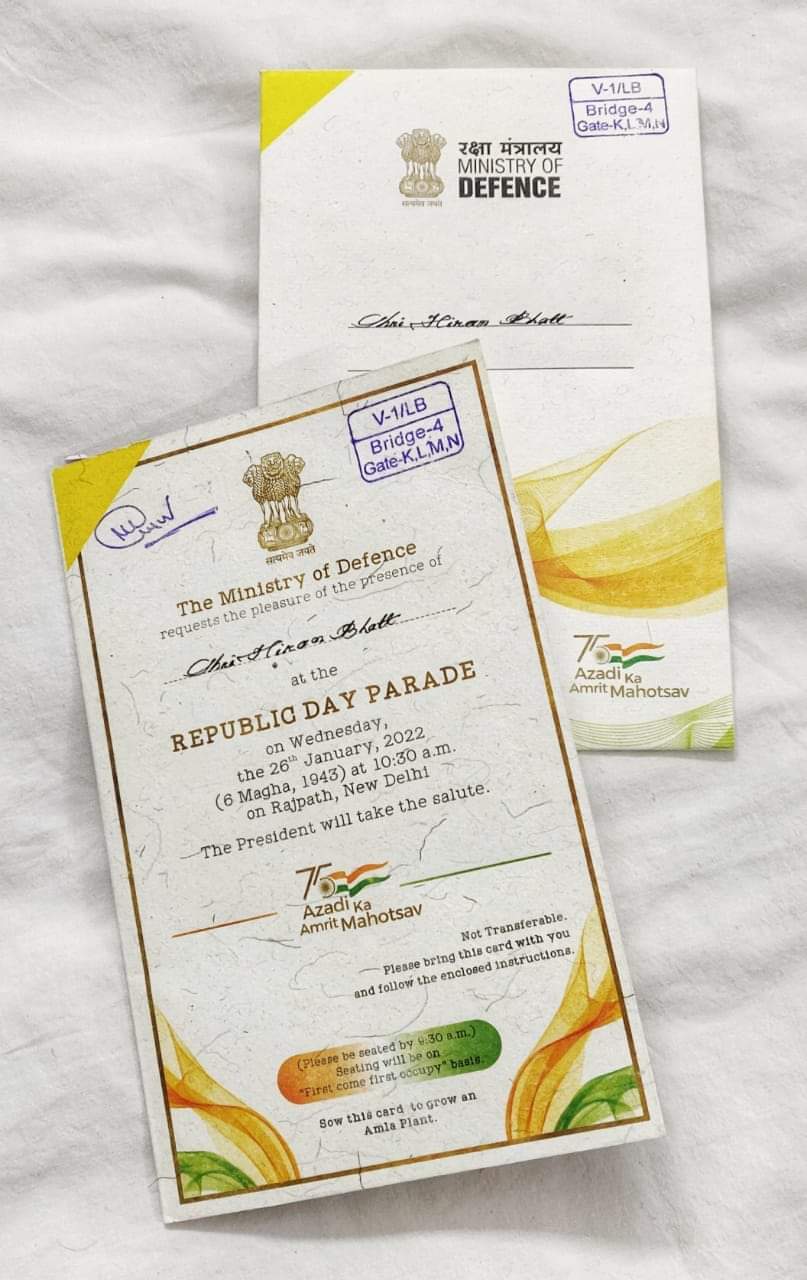 V-1/LB
Bridge-4
Gate-K,L,M,N
रक्षा मंत्रालय
MINISTRY OF
DEFENCE
सत्यमेव जयते
Shri. Hiran Bhatt
75
Azadi Ka
Amrit Mahotsav
V-1/LB
Bridge-4
Gate-K,L,M,N
सत्यमेव जयते
The Ministry of Defence
requests the pleasure of the presence of
Shri. Hiran Bhatt
at the
REPUBLIC DAY PARADE
on Wednesday,
the 26th January, 2022
(6 Magha, 1943) at 10:30 a.m.
on Rajpath, New Delhi
The President will take the salute.
75
Azadi Ka
Amrit Mahotsav
Not Transferable.
Please bring this card with you
and follow the enclosed instructions.
(Please be seated by 9:30 a.m.)
Seating will be on
"First come first occupy" basis.
Sow this card to grow an
Amla Plant.